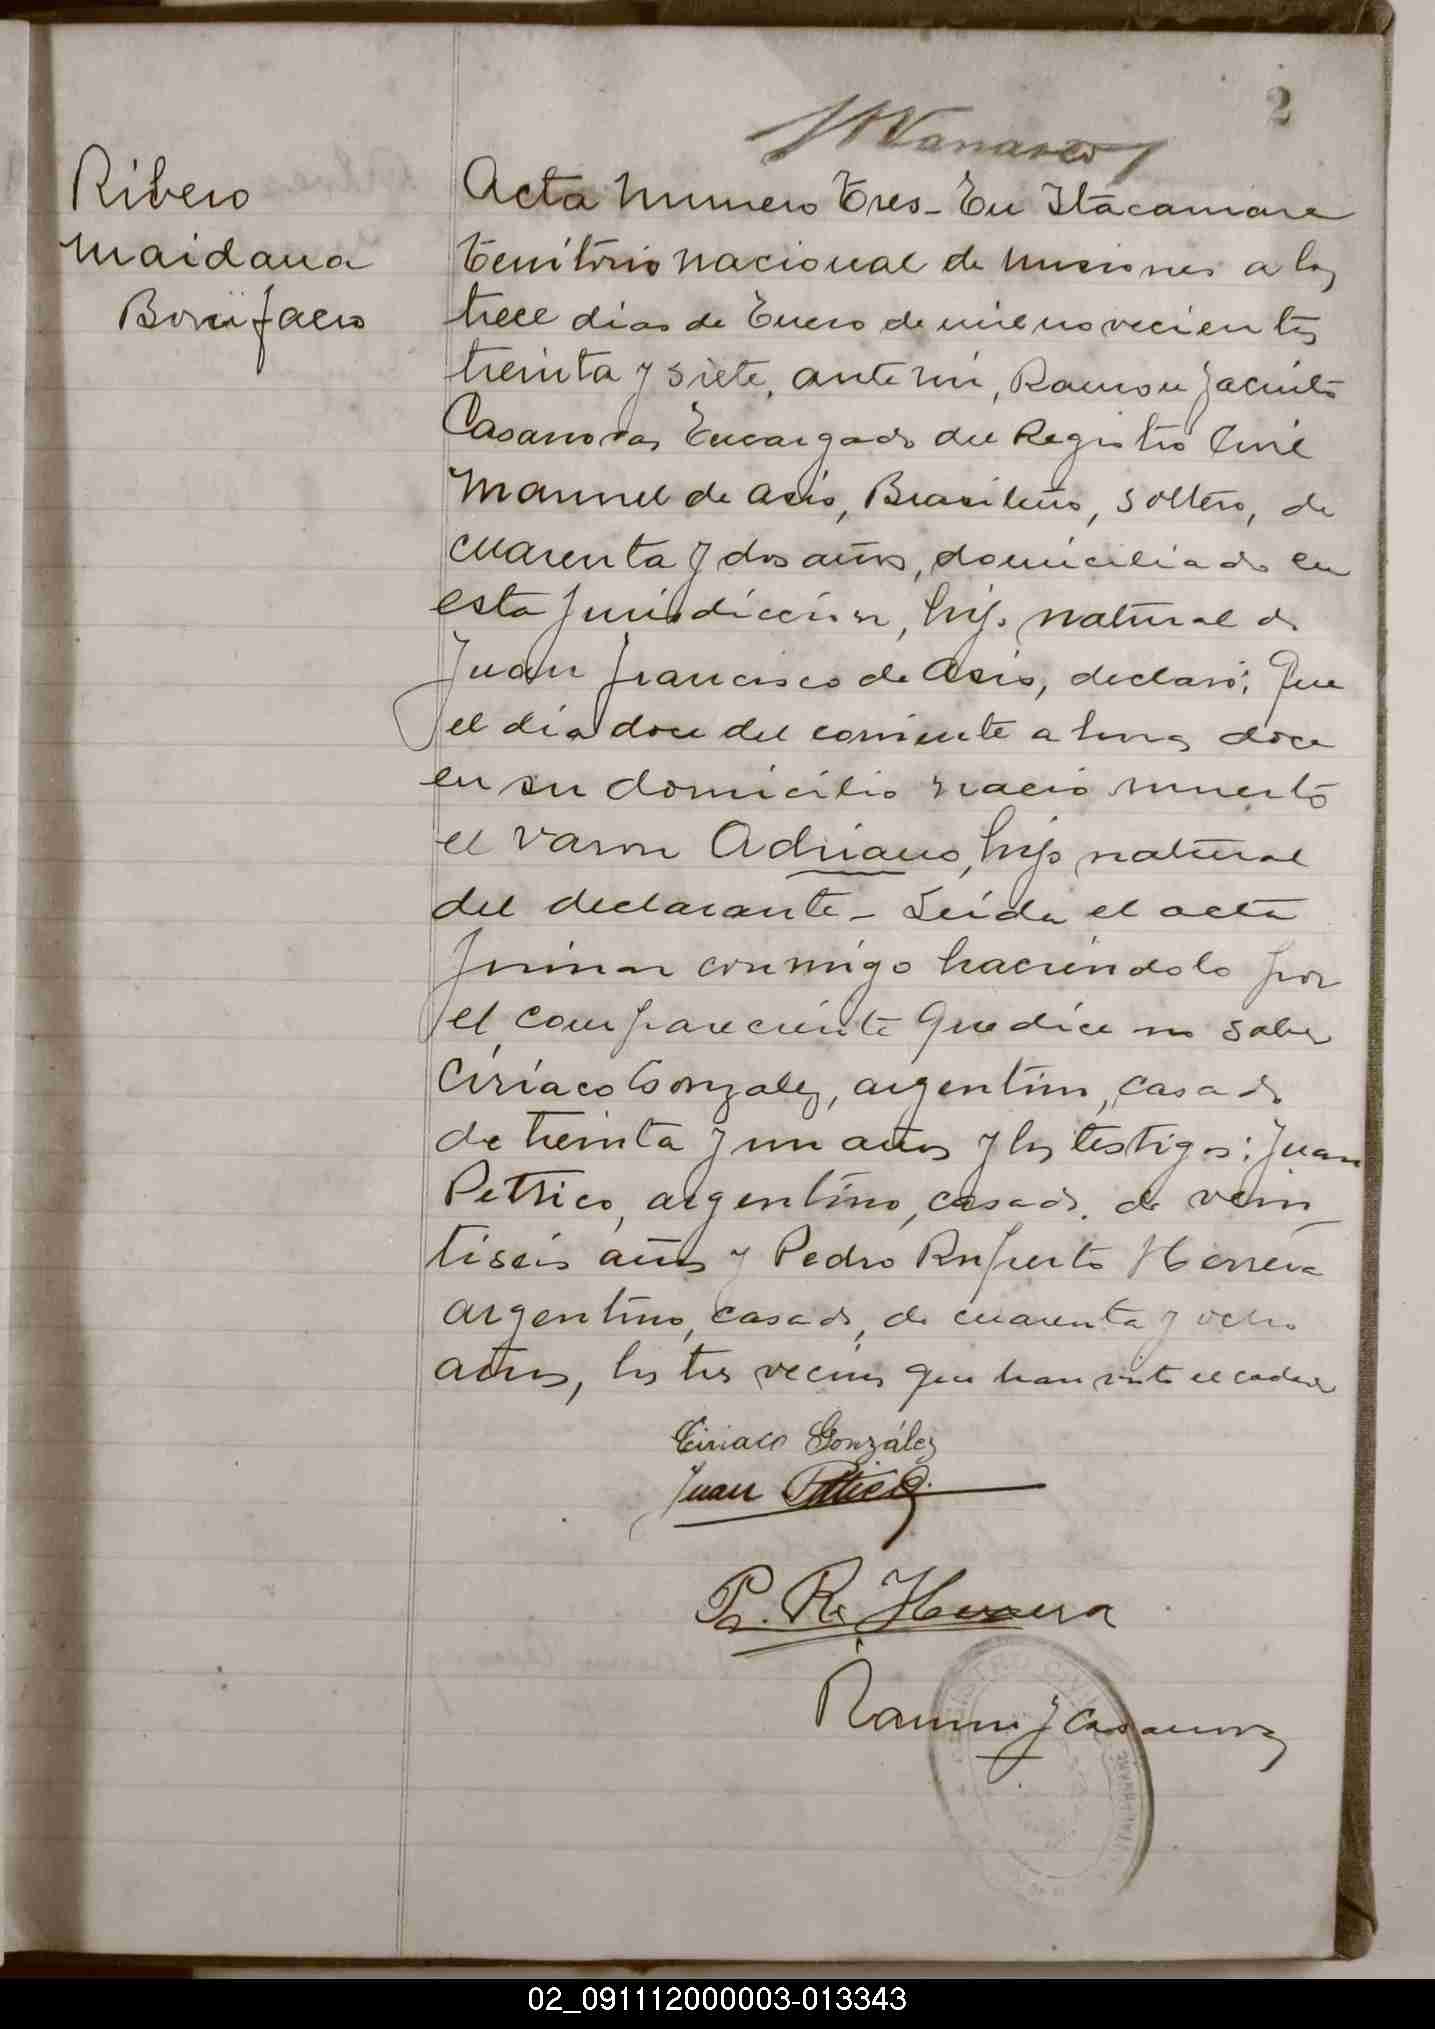 2
Ribero
Maidana
Bonifacio
Acta Numero Tres- En Itacaruare
Territorio nacional de Misiones a los
trece dias de Enero de mil novecientos
treinta y siete, ante mi, Ramon Jacinto
Casanovas Encargado del Registro Civil
Manuel de Asis, Brasileño, soltero, de
cuarenta y dos años, domiciliado en
esta jurisdiccion, hijo natural de
Juan Francisco de Asis, declaró: Que
el dia doce del corriente a horas doce
en su domicilio nacio muerto
el varon Adriano, hijo natural
del declarante- Leida el acta
firman conmigo haciendolo por
el compareciente que dice no saber
Ciriaco Gonzalez, argentino, casado
de treinta y un años y los testigos: Juan
Petrico, argentino, casado, de vein
tiseis años y Pedro Ruperto Herrera
argentino, casado, de cuarenta y ocho
años, los tres vecinos que han visto el cadaver
Ciriaco González
Juan
P. R. Herrera
Ramon J Casanova
REGISTRO CIVIL
02_091112000003-013343